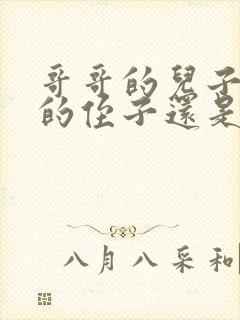 哥哥的兒子
的侄子還是
八月八采和